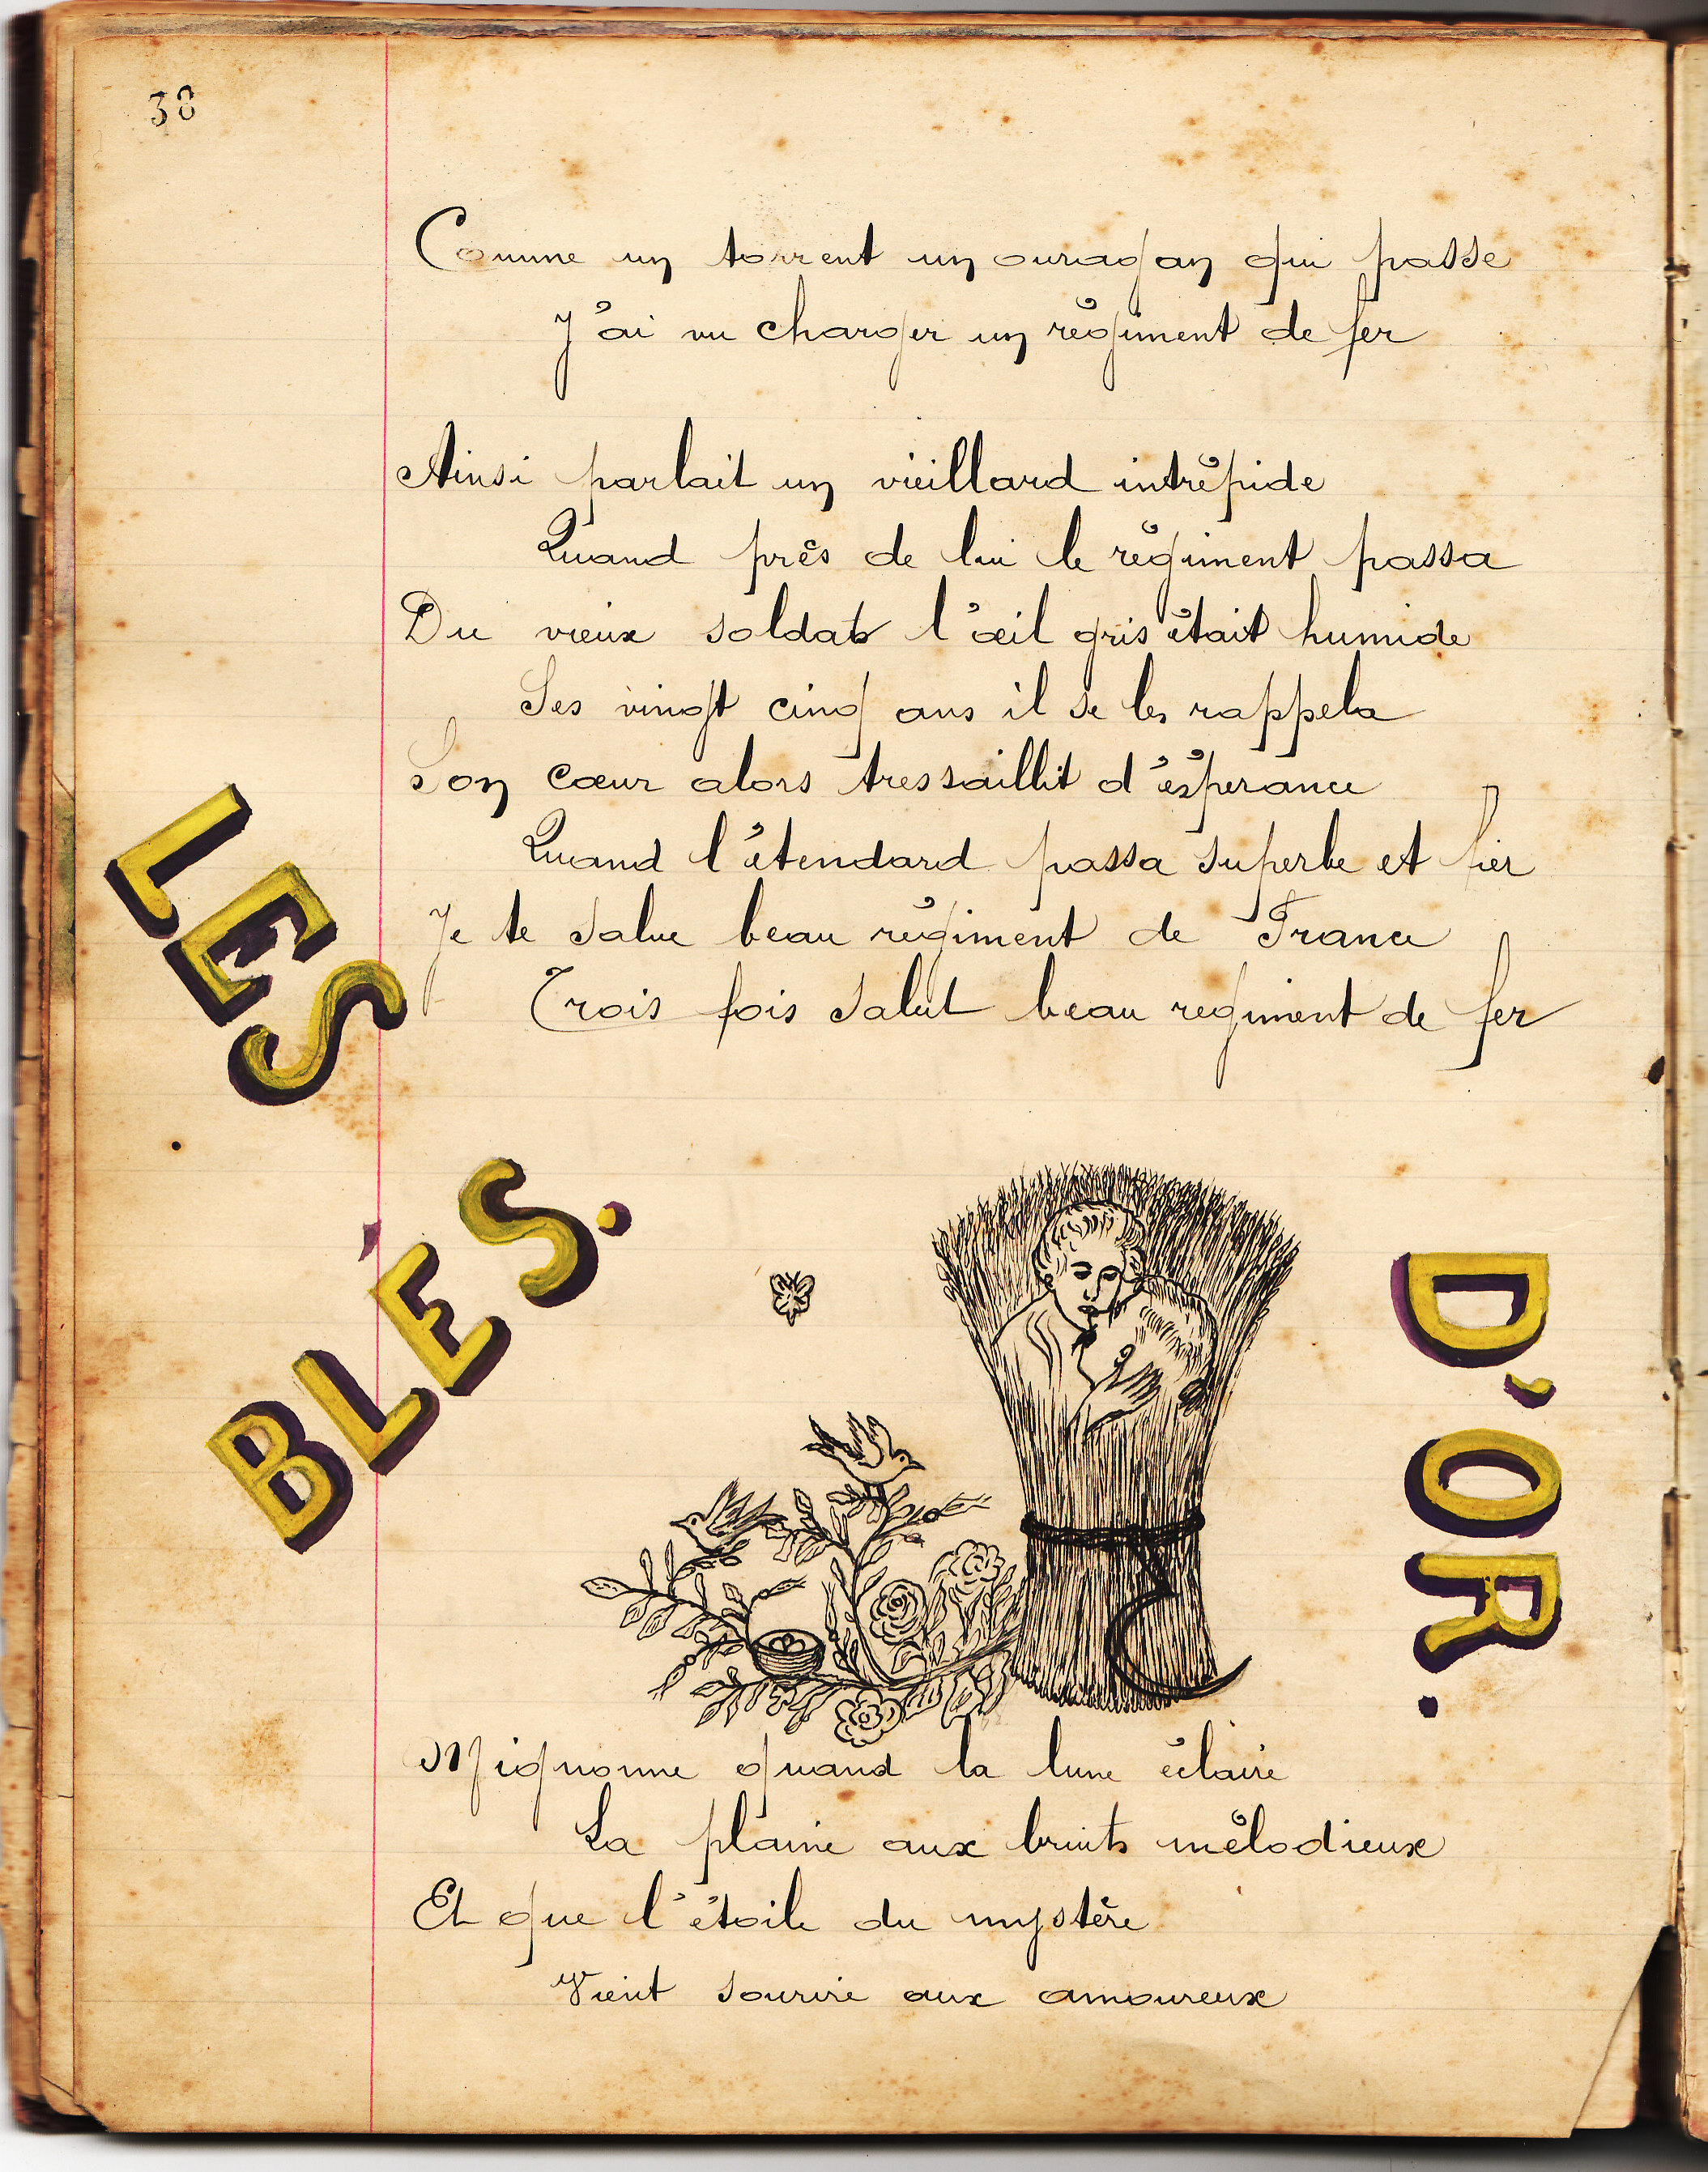 38
Comme un torrent un ouragan qui passe
J'ai vu charger un régiment de fer
Ainsi parlait un vieillard intrépide
Quand près de lui le régiment passa
Du vieux soldat l'œil gris était humide
Ses vingt cinq ans il se les rappela
Son cœur alors tressaillit d'ésperance
Quand l'étendard passa superbe et fier
Je te salue beau régiment de France
Trois fois salut beau regiment de fer
LES
BLÉS.
D'OR.
Mignonne quand la lune éclaire
La plaine aux bruits mélodieux
Et que l'étoile du mystère
Vient sourire aux amoureux